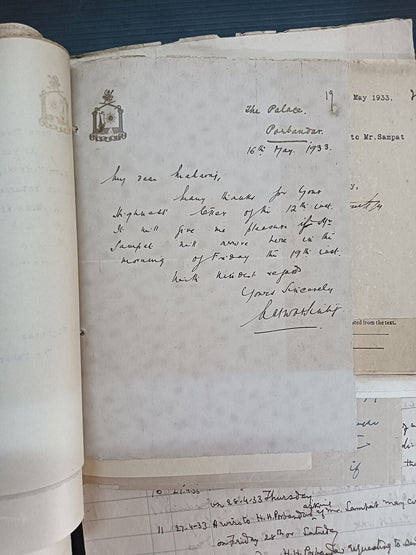 19
The Palace.
Porbandar.
16th May. 1933.
My dear Maharaj,
Many thanks for Your
Highness' letter of the 12th inst.
It will give me pleasure if Mr.
Sampat will arrive here in the
morning of Friday the 19th inst.
With kindest regards
Yours Sincerely
May 1933.
to Mr. Sampat
ated from the text.
if
10
on 28-4-33 Thursday
11 27-4-33 A wire to H.H. Porbandar asking if Mr. Sampat may
on Friday 28th or Saturday
H.H. Porbandar requesting to